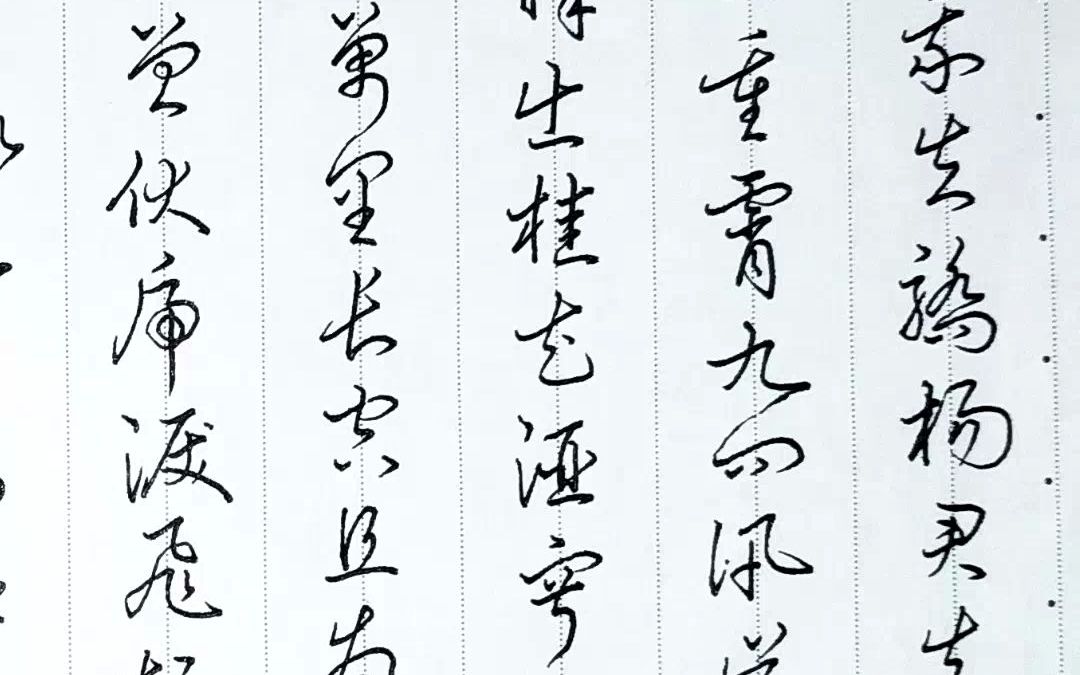 我失驕杨君失
重霄九问讯
捧出桂花酒寂
萬里长空且为
曾伏虎淚飞